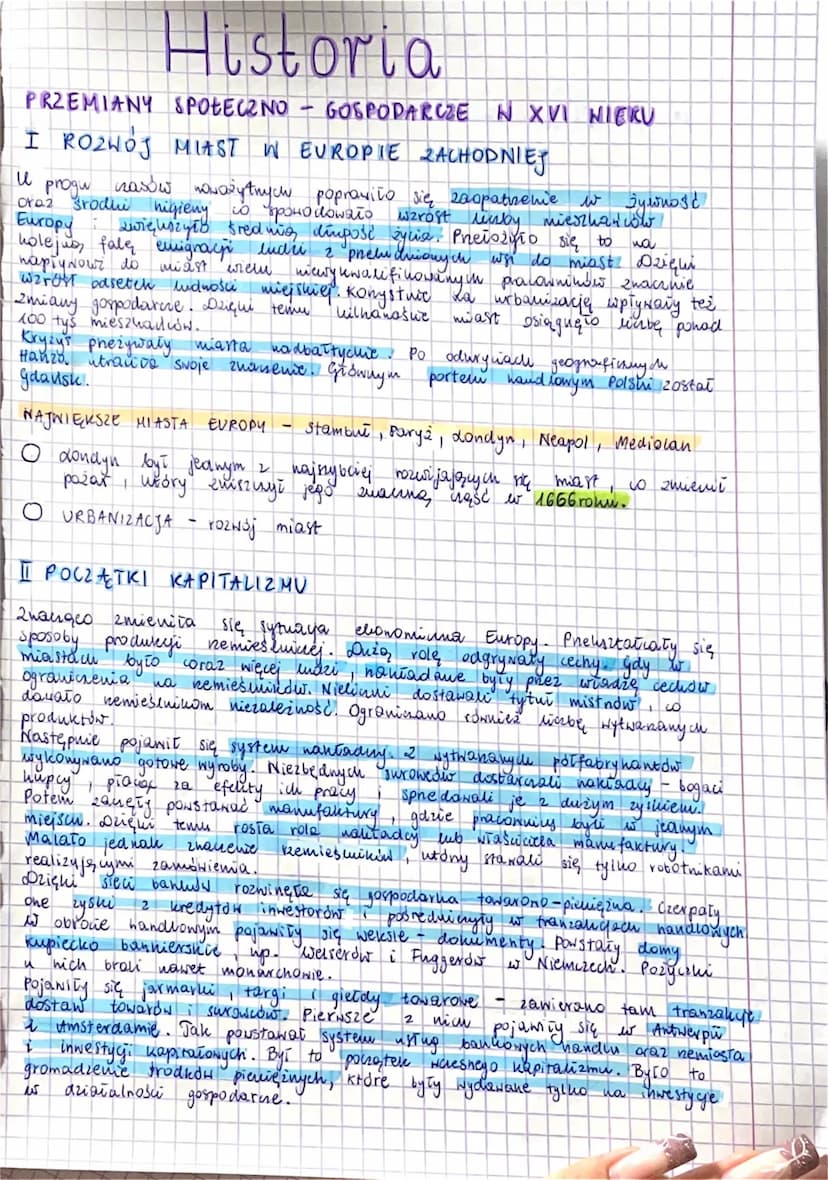 Historia
PRZEMIANY SPOŁECZNO - GOSPODARCZE W XVI WIEKU
I ROZWÓJ MIAST W EUROPIE ZACHODNIEJ
U progu czasów nowożytnych poprawiło się zaopatrzenie w żywność
oraz środki higieny co spowodowało wzrost liczby mieszkańców
Europy i zwiększyło średnią długość życia. Przełożyło się to na
kolejną falę emigracji ludzi z przeludnionych wsi do miast. Dzięki
napływowi do miast wielu niewykwalifikowanych pracowników znacznie
wzrósł odsetek ludności miejskiej. Korzystnie na urbanizację wpływały też
zmiany gospodarcze. Dzięki temu kilkanaście miast osiągnęło liczbę ponad
100 tyś mieszkańców.
Kryzys przeżywały miasta nadbałtyckie. Po odkryciach geograficznych
Hanza utraciła swoje znaczenie. Głównym portem handlowym Polski został
Gdańsk.
NAJWIĘKSZE MIASTA EUROPY - Stambuł, Paryż, Londyn, Neapol, Mediolan
Londyn był jednym z najszybciej rozwijających się miast, co zmienił
pożar, który zniszczył jego znaczną część w 1666 roku.
URBANIZACJA - rozwój miast
II POCZĄTKI KAPITALIZMU
Znacząco zmieniła się sytuacja ekonomiczna Europy. Przekształcały się
sposoby produkcji rzemieślniczej. Dużą rolę odgrywały cechy. Gdy w
miastach było coraz więcej ludzi, nakładane były przez władzę cechów
ograniczenia na rzemieślników. Nieliczni dostawali tytuł mistrzów, co
dawało rzemieślnikom niezależność. Ograniczano również liczbę wytwarzanych
produktów.
Następnie pojawił się system nakładczy. Z wytwarzanych półfabrykantów
wykonywano gotowe wyroby. Niezbędnych surowców dostarczali nakładcy - bogaci
kupcy, płacąc za efekty ich pracy i sprzedawali je z dużym zyskiem.
Potem zaczęły powstawać manufaktury, gdzie pracownicy byli w jednym
miejscu. Dzięki temu rosła rola nakładcy lub właściciela manufaktury.
Malało jednak znaczenie rzemieślników, którzy stawali się tylko robotnikami
realizującymi zamówienia.
Dzięki sieci banków rozwinęła się gospodarka towarono-pieniężna. Czerpały
one zyski z kredytów inwestorów i pośredniczyły w tranzakcjach handlowych
W obrocie handlowym pojawiły się weksle - dokumenty. Powstały domy
kupiecko bankierskie, np. Welserów i Fuggerów w Niemczech. Pożyczki
u nich brali nawet monarchowie.
Pojawiły się jarmarki, targi i giełdy towarowe - zawierano tam tranzakcje
dostaw towarów i surowców. Pierwsze z nich pojawiły się w Antwerpii
i Amsterdamie. Tak powstawał system usług bankowych handlu oraz rzemiosła
i inwestycji kapitałowych. Był to początek wczesnego kapitalizmu. Było to
gromadzenie środków pieniężnych, które były wydawane tylko na inwestycje
w działalności gospodarcze.